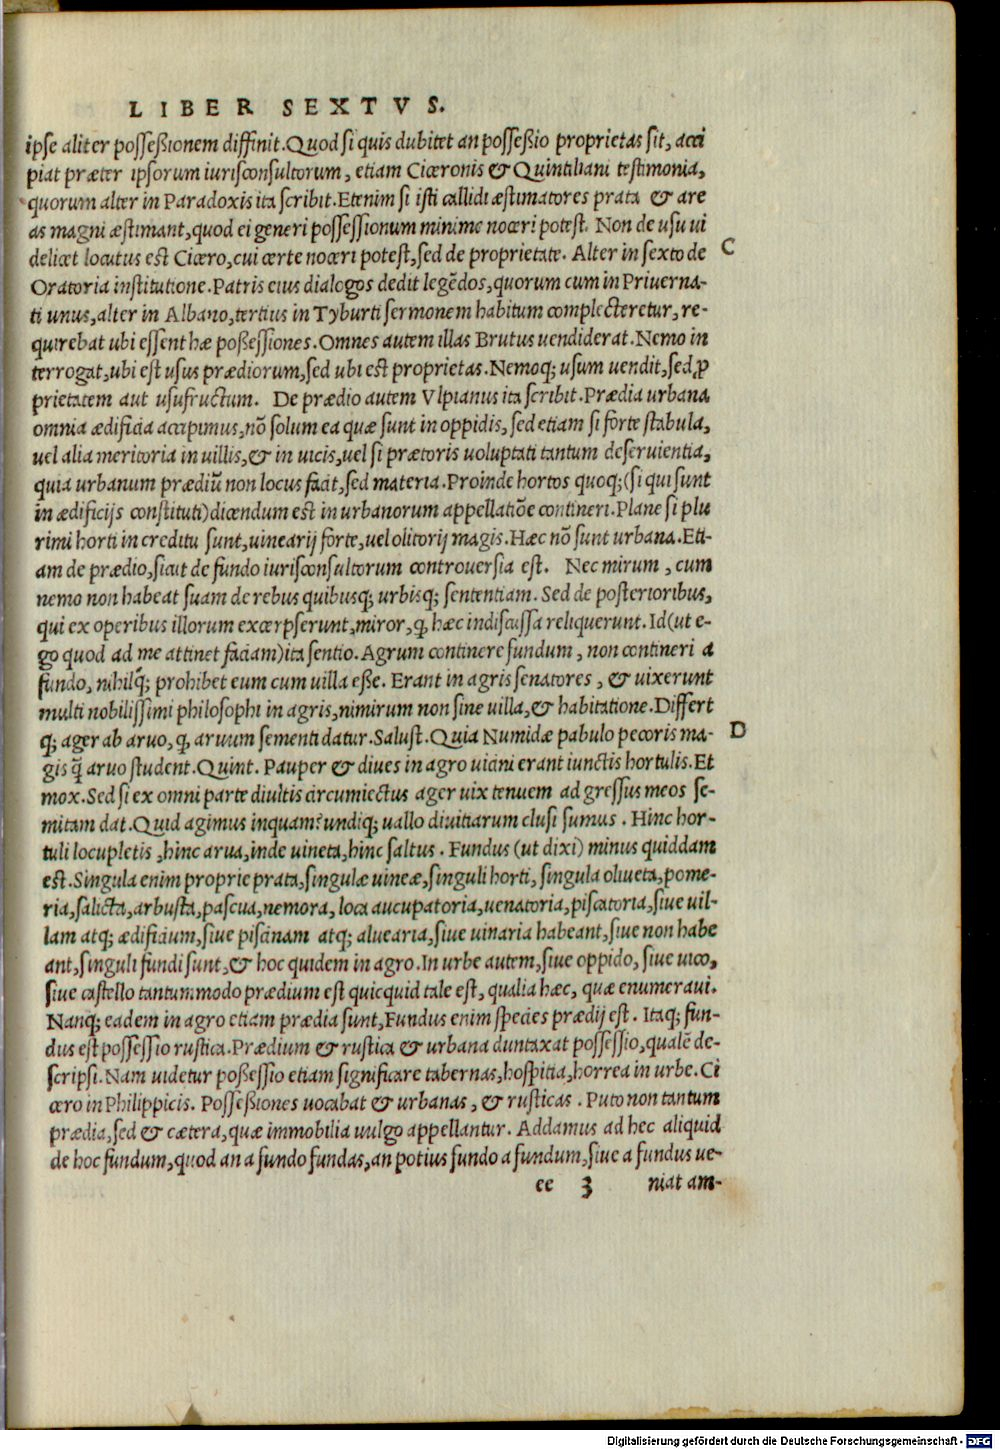 LIBER SEXTVS.
ipse aliter possessionem diffinit. Quod si quis dubitet an possessio proprietas sit, acci
piat præter ipsorum iurisconsultorum, etiam Ciceronis & Quintiliani testimonia,
quorum alter in Paradoxis ita scribit. Etenim si isti callidi æstimatores prata & are
as magni æstimant, quod ei generi possessionum minime noceri potest. Non de usu ui
delicet locutus est Cicero, cui certe noceri potest, sed de proprietate. Alter in sexto de
C
Oratoria institutione. Patris eius dialogos dedit legēdos, quorum cum in Priuerna-
ti unus, alter in Albano, tertius in Tyburti sermonem habitum complecteretur, re-
quirebat ubi essent hæ possessiones. Omnes autem illas Brutus uendiderat. Nemo in
terrogat, ubi est usus prædiorum, sed ubi est proprietas. Nemoq; usum uendit, sed ꝓ
prietatem aut usufructum. De prædio autem Vlpianus ita scribit. Prædia urbana
omnia ædificia accipimus, nō solum ea quæ sunt in oppidis, sed etiam si forte stabula,
uel alia meritoria in uillis, & in uicis, uel si prætoris uoluptati tantum deseruientia,
quia urbanum prædiū non locus facit, sed materia. Proinde hortos quoq; (si qui sunt
in ædificijs constituti) dicendum est in urbanorum appellatiōe contineri. Plane si plu
rimi horti in creditu sunt, uinearij forte, uel olitorij magis. Hæc nō sunt urbana. Eti-
am de prædio, sicut de fundo iurisconsultorum controuersia est. Nec mirum, cum
nemo non habeat suam de rebus quibusq; urbisq; sententiam. Sed de posterioribus,
qui ex operibus illorum excerpserunt, miror, ꝙ hæc indiscussa reliquerunt. Id (ut e-
go quod ad me attinet faciam) ita sentio. Agrum continere fundum, non contineri a
fundo, nihilq̃; prohibet eum cum uilla esse. Erant in agris senatores, & uixerunt
multi nobilissimi philosophi in agris, nimirum non sine uilla, & habitatione. Differt
q; ager ab aruo, ꝙ aruum sementi datur. Salust. Quia Numidæ pabulo pecoris ma-
D
gis q̃ aruo student. Quint. Pauper & diues in agro uicini erant iunctis hortulis. Et
mox. Sed si ex omni parte diuitis circumiectus ager uix tenuem ad gressus meos se-
mitam dat. Quid agimus inquam? undiq; uallo diuitiarum clusi sumus. Hinc hor-
tuli locupletis, hinc arua, inde uineta, hinc saltus. Fundus (ut dixi) minus quiddam
est. Singula enim proprie prata, singulæ uineæ, singuli horti, singula oliueta, pome-
ria, salicta, arbusta, pascua, nemora, loca aucupatoria, uenatoria, piscatoria, siue uil-
lam atq; ædificium, siue piscinam atq; aluearia, siue uinaria habeant, siue non habe
ant, singuli fundi sunt, & hoc quidem in agro. In urbe autem, siue oppido, siue uico,
siue castello tantummodo prædium est quicquid tale est, qualia hæc, quæ enumeraui.
Nanq; eadem in agro etiam prædia sunt, Fundus enim species prædij est. Itaq; fun-
dus est possessio rustica. Prædium & rustica & urbana duntaxat possessio, qualē de-
scripsi. Nam uidetur possessio etiam significare tabernas, hospitia, horrea in urbe. Ci
cero in Philippicis. Possessiones uocabat & urbanas, & rusticas. Puto non tantum
prædia, sed & cætera, quæ immobilia uulgo appellantur. Addamus ad hec aliquid
de hoc fundum, quod an a fundo fundas, an potius fundo a fundum, siue a fundus ue-
ee 3 niat am-
Digitalisierung gefördert durch die Deutsche Forschungsgemeinschaft - DFG